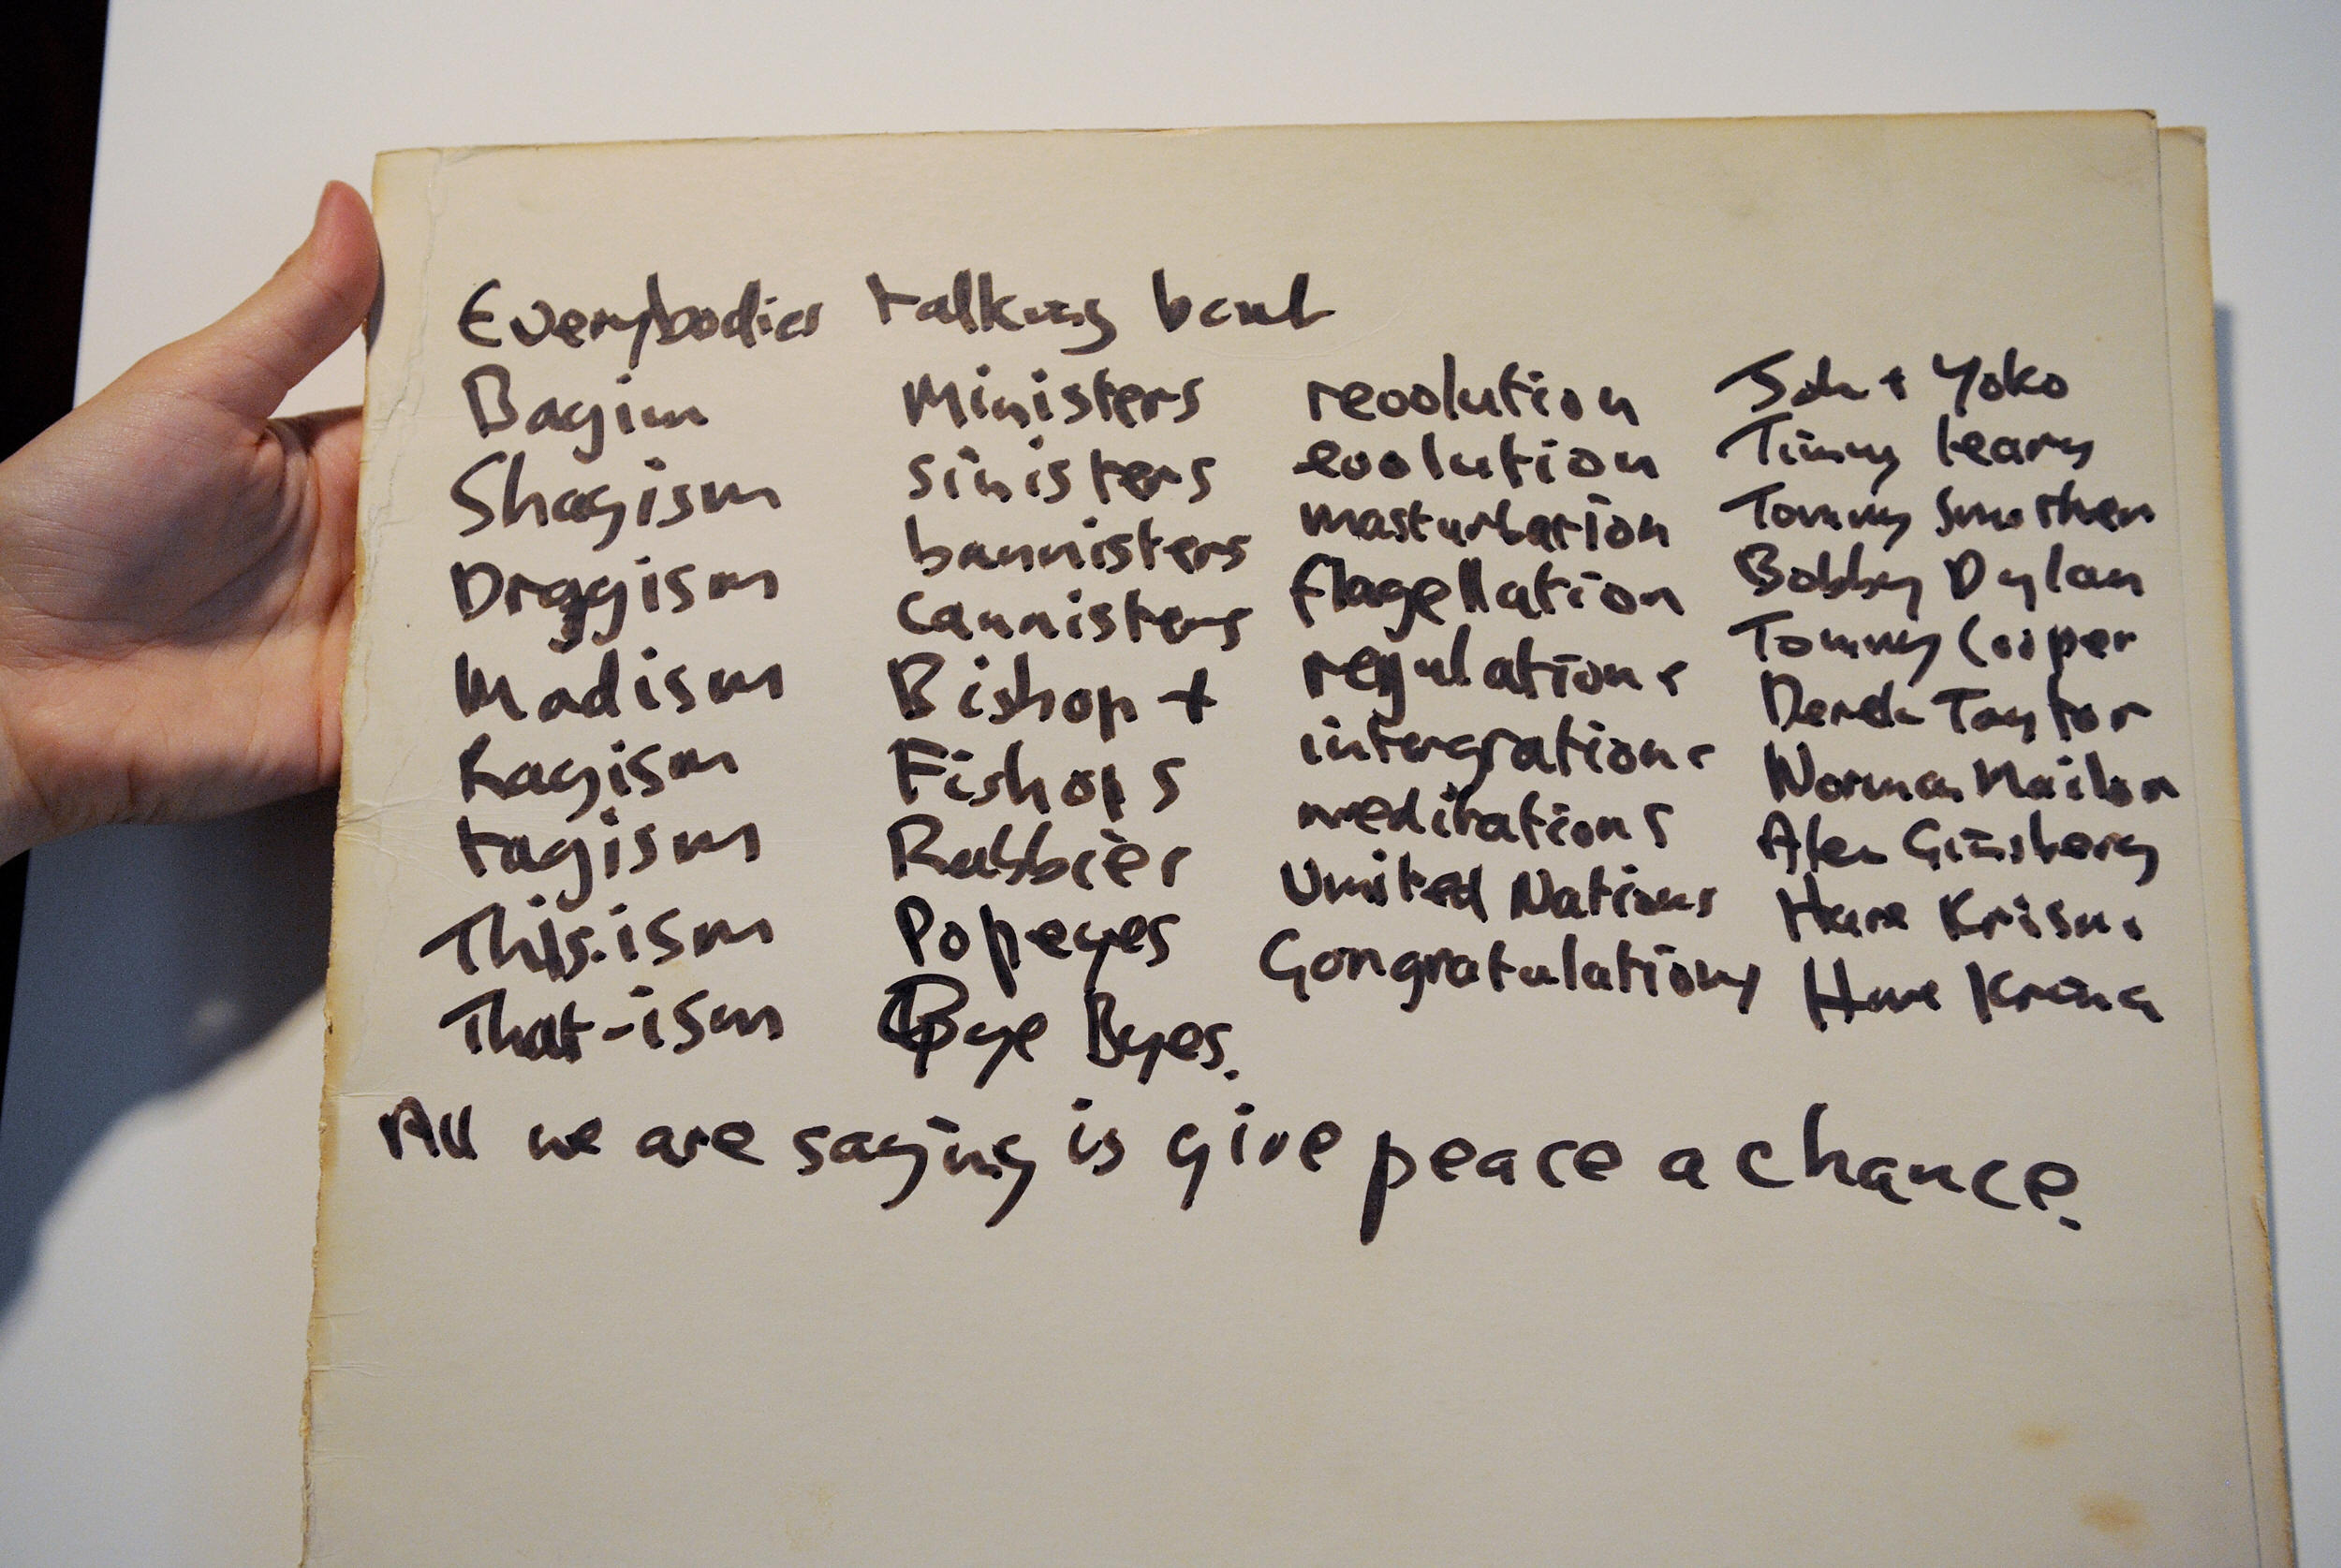 Everybodies talking bout
Bagism
Shagism
Dragism
Madism
Ragism
tagism
This-ism
That-ism
Ministers
sinisters
bannisters
Cannisters
Bishop +
Fishops
Rabbies
Popeyes
Bye Byes.
revolution
evolution
masturbation
flagellation
regulations
intergrations
meditations
United Nations
Congratulations
John + Yoko
Timmy leary
Tommy Smothers
Bobby Dylan
Tommy Cooper
Derek Taylor
Norman Mailer
Alen Ginsberg
Hare Krisna
Hare Krisna
All we are saying is give peace a chance.